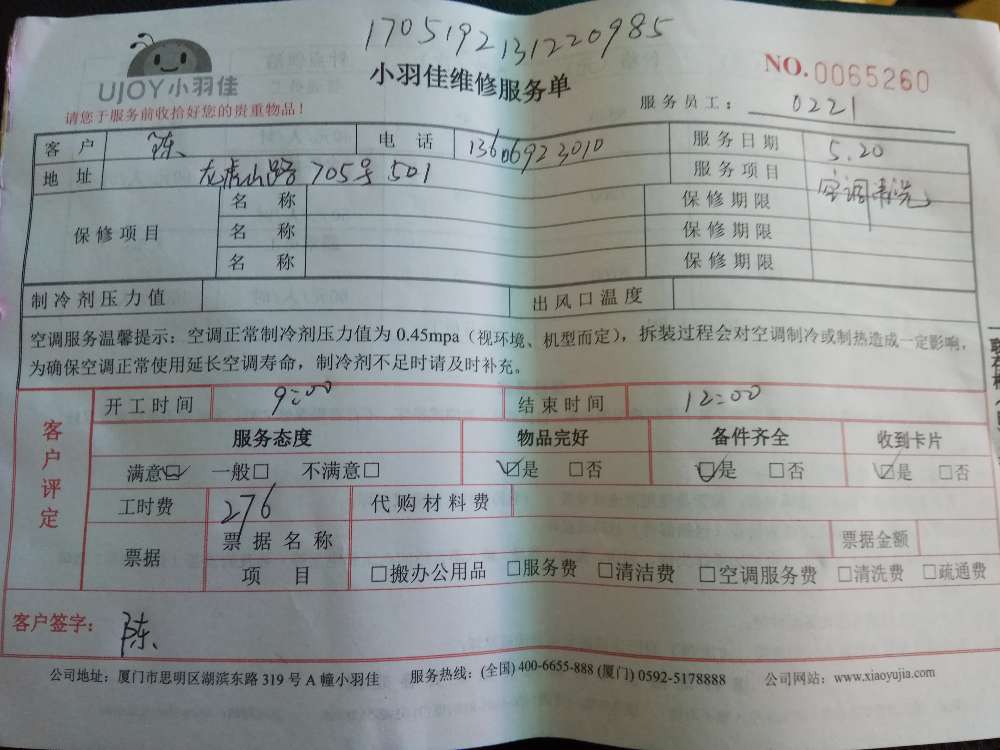 1705192131220985
UJOY小羽佳
小羽佳维修服务单
NO.0065260
请您于服务前收拾好您的贵重物品！
服务员工： 0221
客户 陈 电话 13606923010 服务日期 5.20
地址 龙虎山路705号501 服务项目 空调清洗
保修项目
名称 保修期限
名称 保修期限
名称 保修期限
制冷剂压力值 出风口温度
空调服务温馨提示：空调正常制冷剂压力值为 0.45mpa（视环境、机型而定），拆装过程会对空调制冷或制热造成一定影响，
为确保空调正常使用延长空调寿命，制冷剂不足时请及时补充。
客户评定
开工时间 9:00 结束时间 12:00
服务态度 物品完好 备件齐全 收到卡片
满意☑ 一般□ 不满意□ ☑是 □否 ☑是 □否 ☑是 □否
工时费 276 代购材料费
票据 票据名称 票据金额
项目 □搬办公用品 □服务费 □清洁费 □空调服务费 □清洗费 □疏通费
客户签字： 陈
公司地址：厦门市思明区湖滨东路 319 号 A 幢小羽佳 服务热线：(全国) 400-6655-888 (厦门) 0592-5178888 公司网站：www.xiaoyujia.com